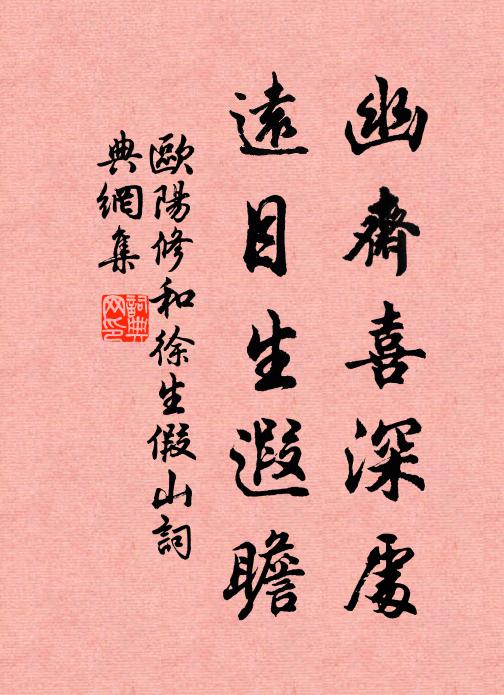 幽齋喜深處
遠目生遐瞻
歐陽修和徐生假山詞
典網集
詞典網印